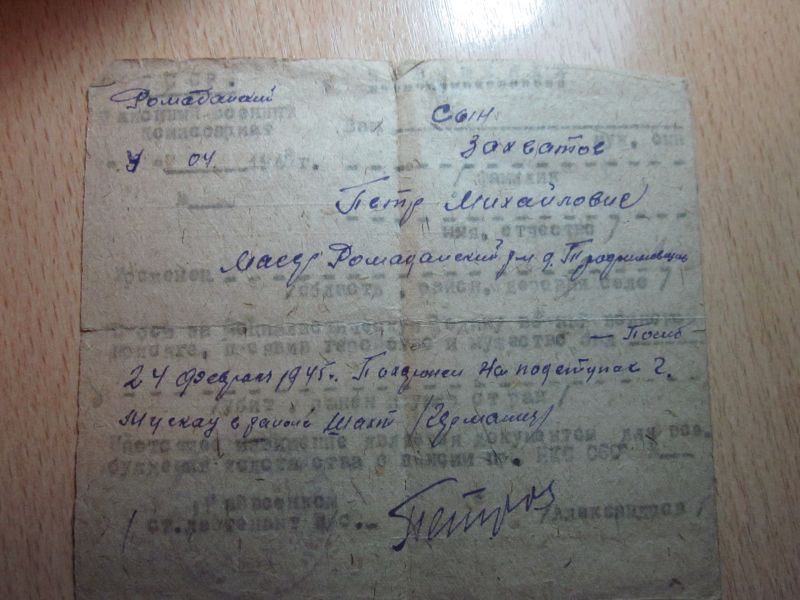 СССР.
Ромодановский
районный военный
комиссариат
04 194 г.
№
Сын
Ваш
муж, сын
Захватов
фамилия
Петр Михайлович
имя, отчество/
МАССР Ромодановский
Уроженец
/область, район, деревня село/
В бою за Социалистическую Родину верный воинской
присяге, проявив геройство и мужество был Погиб
24 февраля 1945г. Похоронен на подступах г.
/убит, ранен
Мускау в районе шахт /Германия/
Настоящее извещение является документом для воз-
буждения ходатайства о пенсии пр. НКО СССР
Райвоенком
/ст. лейтенант а/с. Петров /Александров/